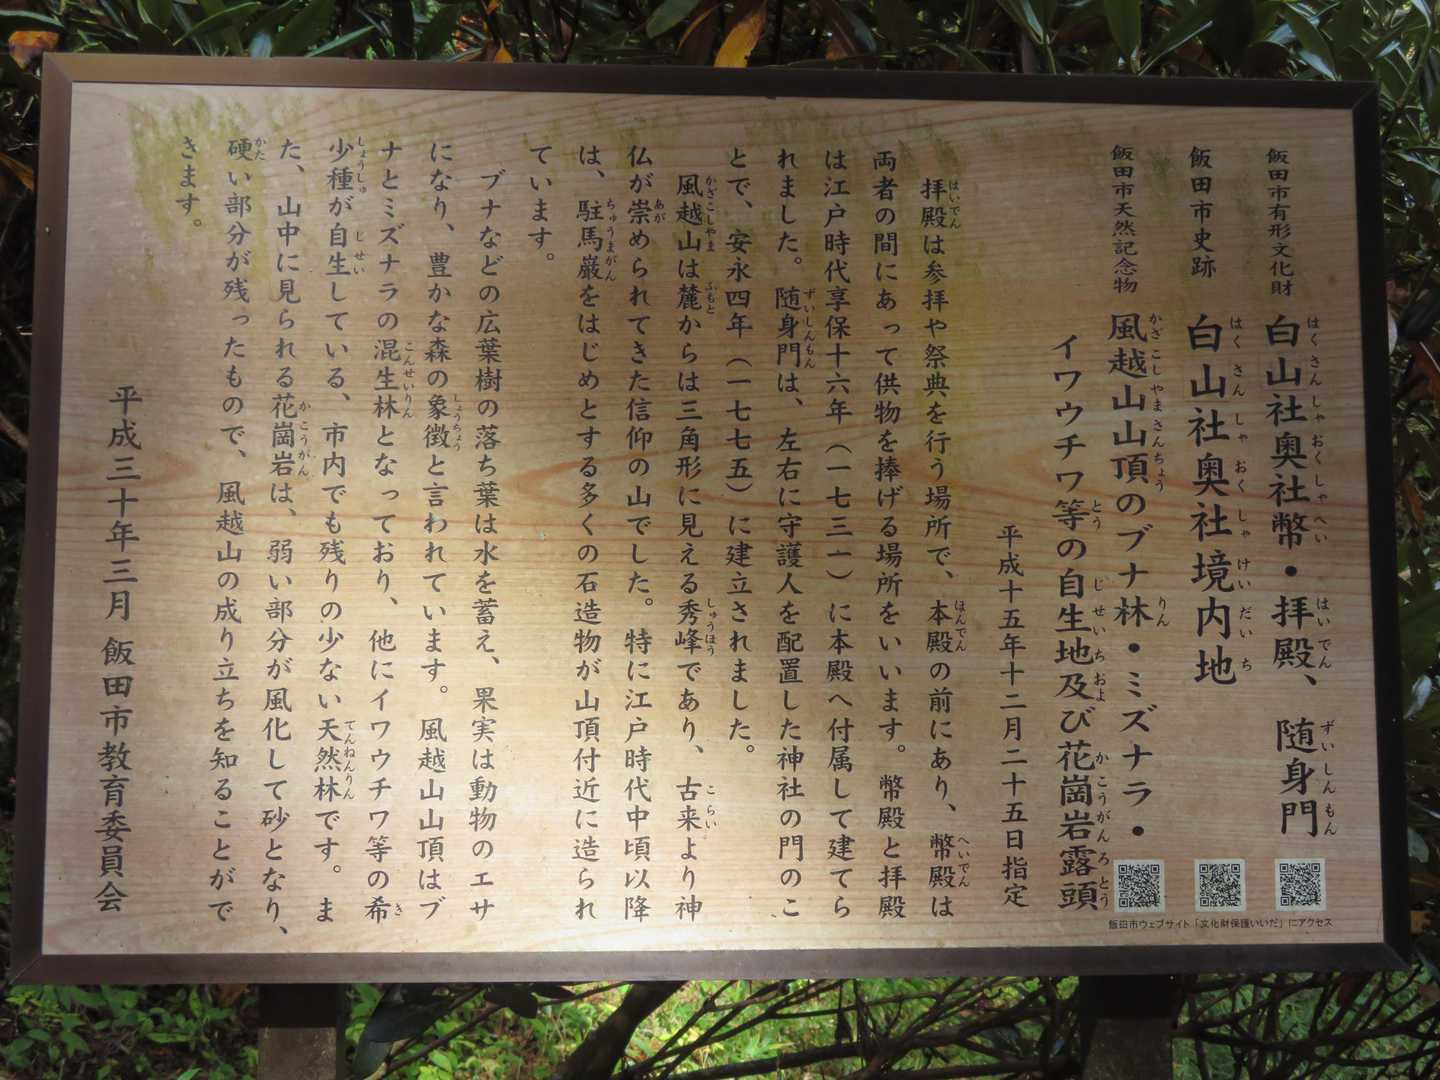 飯田市有形文化財 白山社奥社幣・拝殿、随身門
飯田市史跡 白山社奥社境内地
飯田市天然記念物 風越山山頂のブナ林・ミズナラ・
イワウチワ等の自生地及び花崗岩露頭
平成十五年十二月二十五日指定
拝殿は参拝や祭典を行う場所で、本殿の前にあり、幣殿は
両者の間にあって供物を捧げる場所をいいます。幣殿と拝殿
は江戸時代享保十六年（一七三一）に本殿へ付属して建てら
れました。随身門は、左右に守護人を配置した神社の門のこ
とで、安永四年（一七七五）に建立されました。
風越山は麓からは三角形に見える秀峰であり、古来より神
仏が崇められてきた信仰の山でした。特に江戸時代中頃以降
は、駐馬巌をはじめとする多くの石造物が山頂付近に造られ
ています。
ブナなどの広葉樹の落ち葉は水を蓄え、果実は動物のエサ
になり、豊かな森の象徴と言われています。風越山山頂はブ
ナとミズナラの混生林となっており、他にイワウチワ等の希
少種が自生している、市内でも残りの少ない天然林です。ま
た、山中に見られる花崗岩は、弱い部分が風化して砂となり、
硬い部分が残ったもので、風越山の成り立ちを知ることがで
きます。
平成三十年三月 飯田市教育委員会
飯田市ウェブサイト「文化財保護いいだ」にアクセス